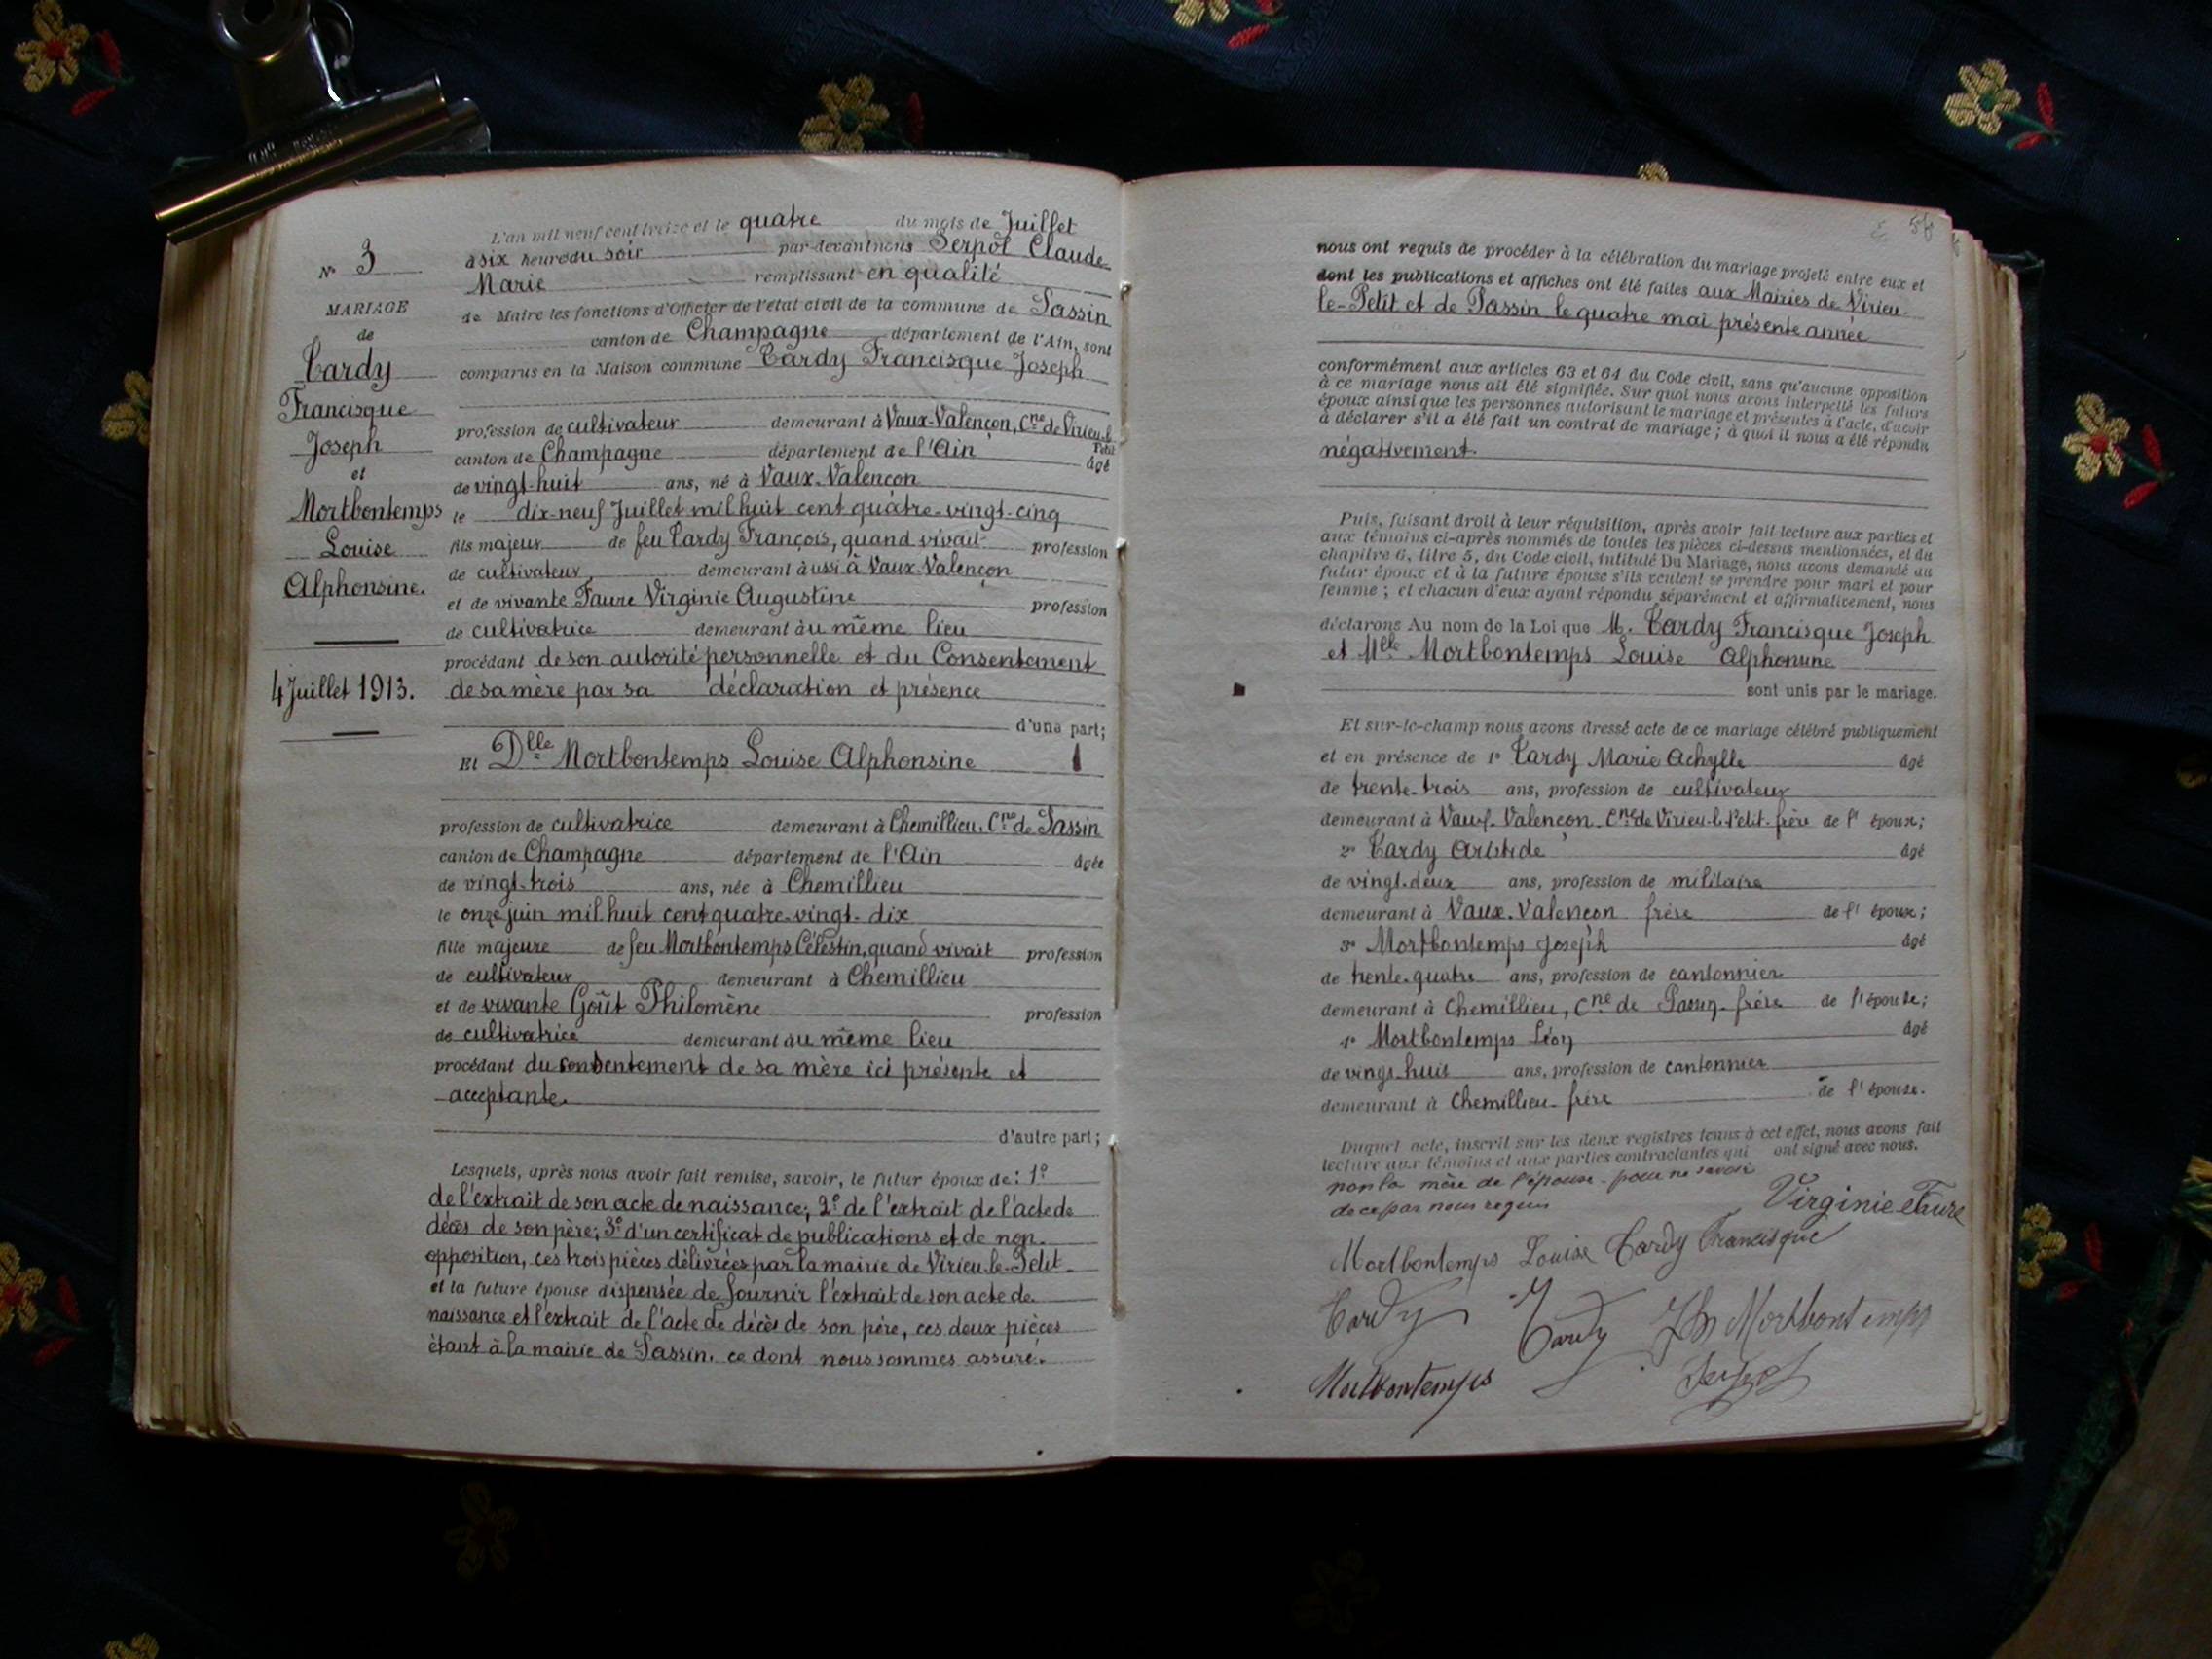 N° 3
MARIAGE
de
Tardy
Francisque
Joseph
et
Mortbontemps
Louise
Alphonsine.
4 Juillet 1913.
L'an mil neuf cent treize et le quatre du mois de Juillet
à six heure du soir par-devant nous Serpol Claude
Marie remplissant en qualité
de Maire les fonctions d'Officier de l'état civil de la commune de Passin
canton de Champagne département de l'Ain, sont
comparus en la Maison commune Tardy Francisque Joseph
profession de cultivateur demeurant à Vaux-Valençon, Cne de Virieu-le
Petit
canton de Champagne département de l'Ain âgé
de vingt-huit ans, né à Vaux-Valençon
le dix-neuf Juillet mil huit cent quatre-vingt-cinq
fils majeur de feu Tardy François, quand vivait profession
de cultivateur demeurant à ussi à Vaux-Valençon
et de vivante Faure Virginie Augustine profession
de cultivatrice demeurant à u même lieu
procédant de son autorité personnelle et du Consentement
de sa mère par sa déclaration et présence
d'une part;
Et Dlle Mortbontemps Louise Alphonsine
profession de cultivatrice demeurant à Chemillieu, Cne de Passin
canton de Champagne département de l'Ain âgée
de vingt-trois ans, née à Chemillieu
le onze juin mil huit cent quatre-vingt-dix
fille majeure de feu Mortbontemps Célestin, quand vivait profession
de cultivateur demeurant à Chemillieu
et de vivante Goût Philomène profession
de cultivatrice demeurant à u même lieu
procédant du consentement de sa mère ici présente et
acceptante.
d'autre part;
Lesquels, après nous avoir fait remise, savoir, le futur époux de: 1°
de l'extrait de son acte de naissance; 2° de l'extrait de l'acte de
décès de son père; 3° d'un certificat de publications et de non-
opposition, ces trois pièces délivrées par la mairie de Virieu-le-Petit
et la future épouse dispensée de fournir l'extrait de son acte de
naissance et l'extrait de l'acte de décès de son père, ces deux pièces
étant à la mairie de Passin, ce dont nous sommes assuré.
56
nous ont requis de procéder à la célébration du mariage projeté entre eux et
dont les publications et affiches ont été faites aux Mairies de Virieu-
le-Petit et de Passin le quatre mai présente année
conformément aux articles 63 et 64 du Code civil, sans qu'aucune opposition
à ce mariage nous ait été signifiée. Sur quoi nous avons interpellé les futurs
époux ainsi que les personnes autorisant le mariage et présentes à l'acte, d'avoir
à déclarer s'il a été fait un contrat de mariage; à quoi il nous a été répondu
négativement.
Puis, faisant droit à leur réquisition, après avoir fait lecture aux parties et
aux témoins ci-après nommés de toutes les pièces ci-dessus mentionnées, et du
chapitre 6, titre 5, du Code civil, intitulé Du Mariage, nous avons demandé au
futur époux et à la future épouse s'ils veulent se prendre pour mari et pour
femme; et chacun d'eux ayant répondu séparément et affirmativement, nous
déclarons Au nom de la Loi que M. Tardy Francisque Joseph
et Melle Mortbontemps Louise Alphonsine
sont unis par le mariage.
Et sur-le-champ nous avons dressé acte de ce mariage célébré publiquement
et en présence de 1° Tardy Marie Achylle âgé
de trente-trois ans, profession de cultivateur
demeurant à Vaux-Valençon Cne de Virieu-le-Petit-frère de l' époux;
2° Tardy Aristide âgé
de vingt-deux ans, profession de militaire
demeurant à Vaux-Valençon frère de l' époux;
3° Mortbontemps Joseph âgé
de trente-quatre ans, profession de cantonnier
demeurant à Chemillieu, Cne de Passin-frère de l'épouse;
4° Mortbontemps Léon âgé
de vingt-huit ans, profession de cantonnier
demeurant à Chemillieu-frère de l'épouse.
Duquel acte, inscrit sur les deux registres tenus à cet effet, nous avons fait
lecture aux témoins et aux parties contractantes qui ont signé avec nous.
non la mère de l'épouse-pour ne savoir
de ce par nous requis
Virginie Faure
Mortbontemps Louise Tardy Francisque
Tardy Tardy Jh Mortbontemps
Mortbontemps Serpol